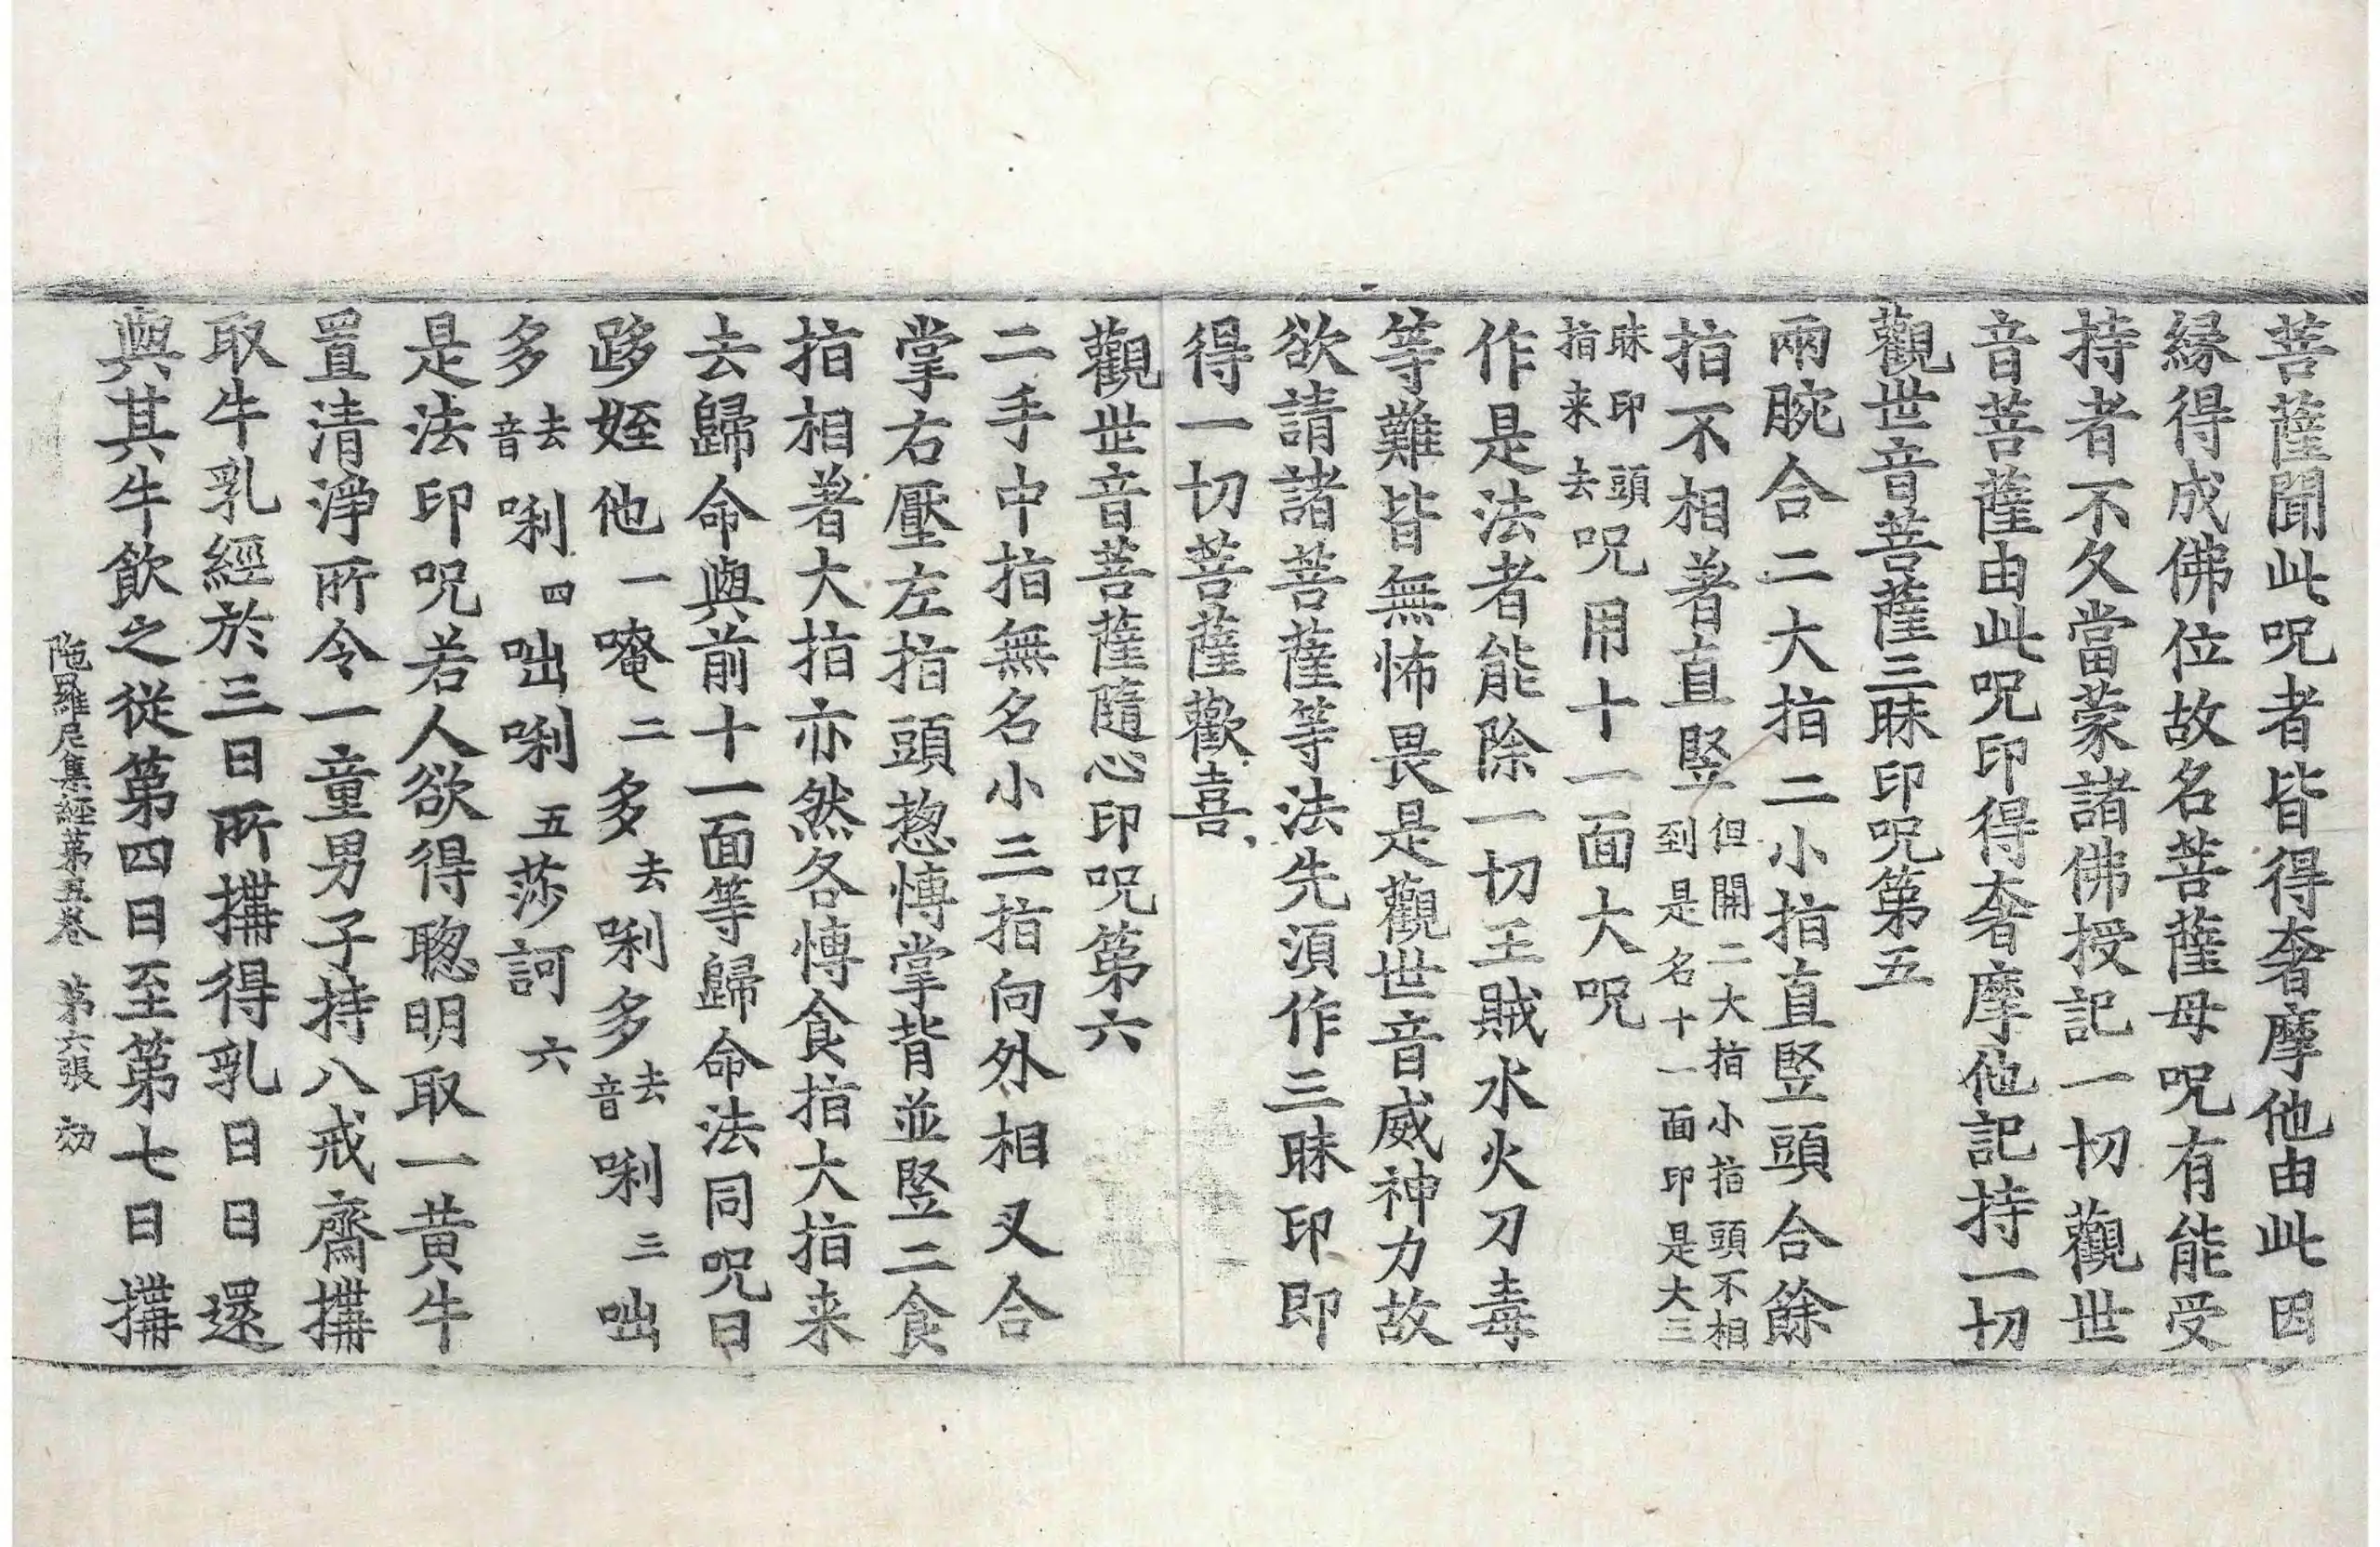 菩薩聞此呪者皆得奢摩他由此因
縁得成佛位故名菩薩母呪有能受
持者不久當蒙諸佛授記一切觀世
音菩薩由此呪印得奢摩他記持一切
觀世音菩薩三昧印呪第五
兩腕合二大指二小指直竪頭合餘
指不相著直竪但開二大指小指頭不相到是名十一面印是大三
昧印頭指来去呪用十一面大呪
作是法者能除一切王賊水火刀毒
等難皆無怖畏是觀世音威神力故
欲請諸菩薩等法先湏作三昧印即
得一切菩薩歡喜
觀世音菩薩隨心印呪第六
二手中指無名小三指向外相叉合
掌右壓左指頭揔愽掌背並竪二食
指相著大指亦然各愽食指大指来
去歸命與前十一面等歸命法同呪曰
跢姪他一唵二多去唎多去音唎三咄
多去音唎四咄唎五莎訶六
是法印呪若人欲得聰明取一黄牛
置清淨所令一童男子持八戒齋㨍
取牛乳經於三日所㨍得乳日日還
與其牛飲之從第四日至第七日㨍
陁羅尼集經第五卷 第六張 効